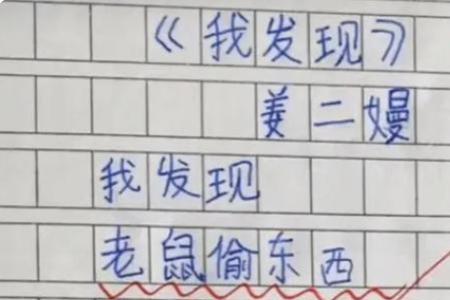 《我发现》
姜二嫚
我发现
老鼠偷东西